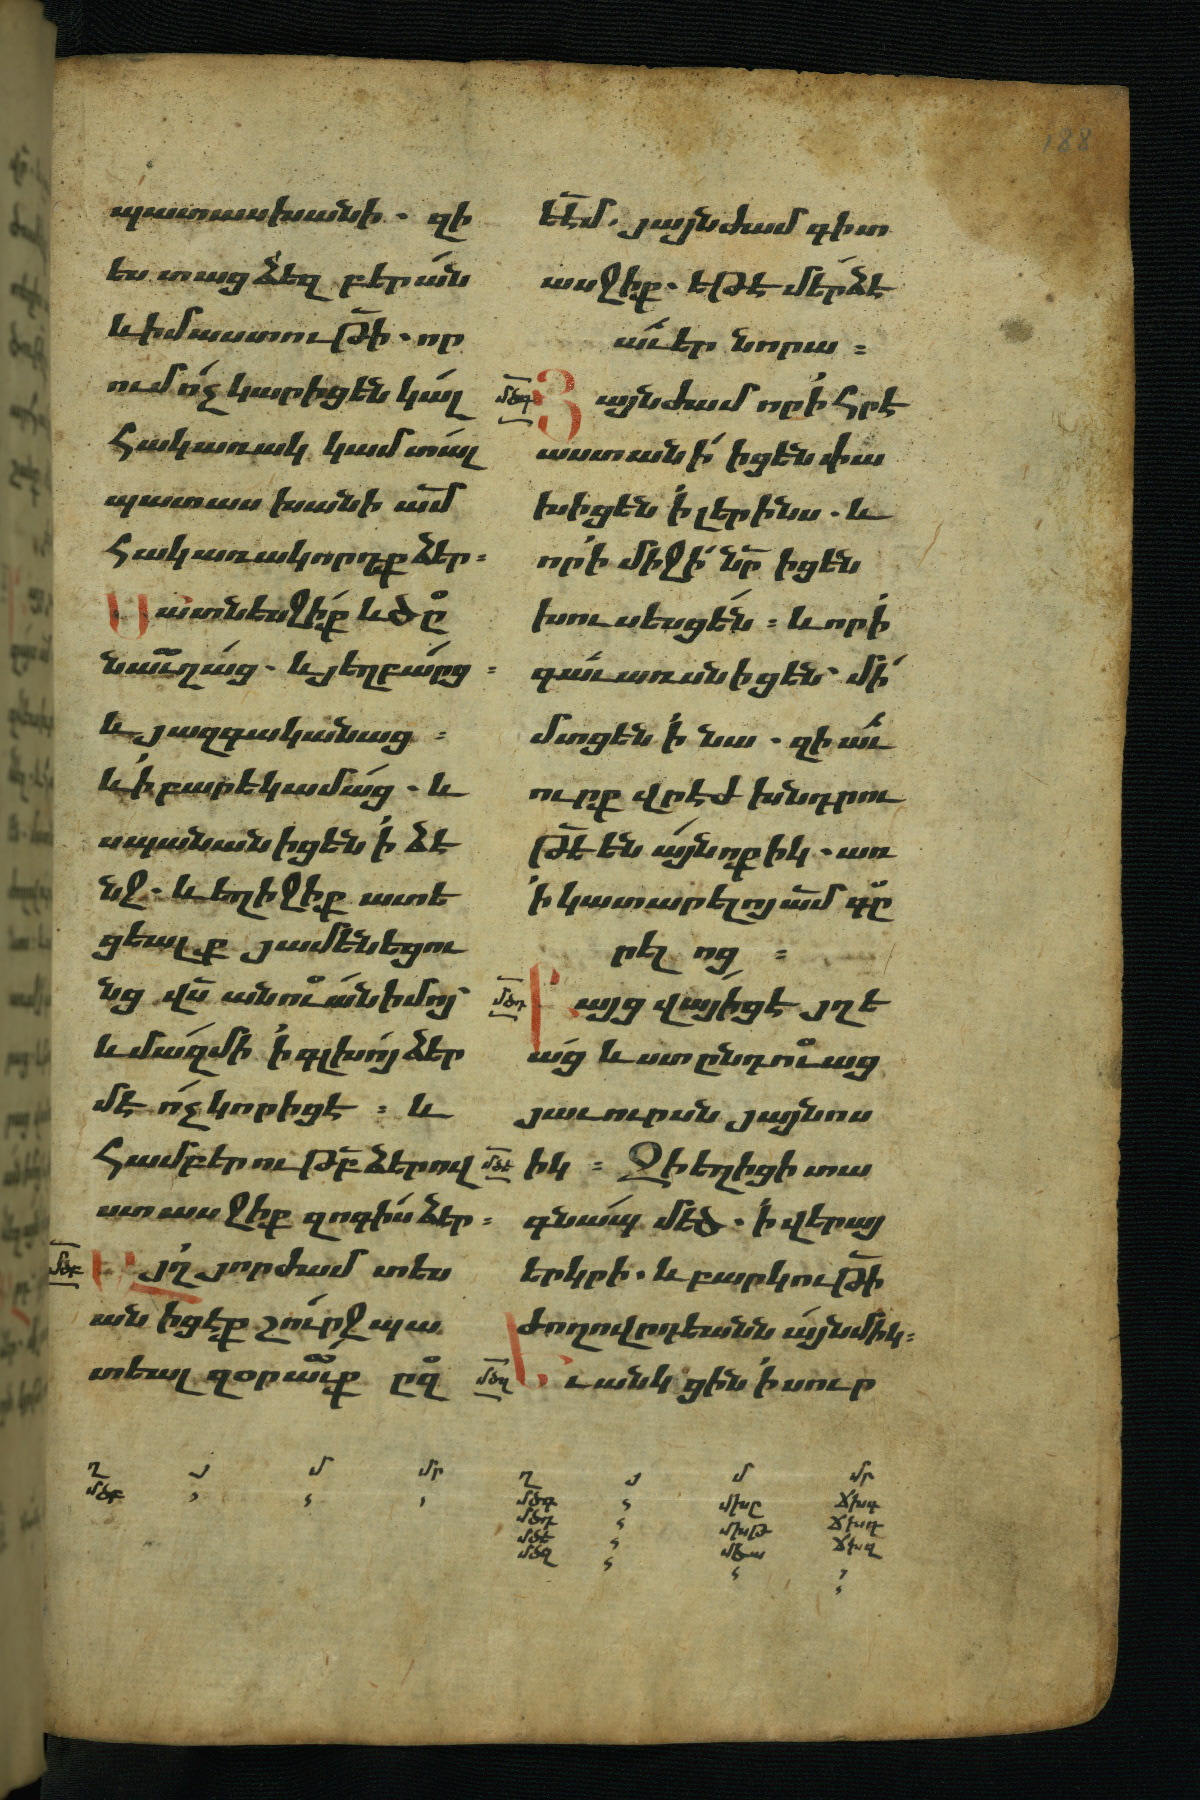 188
պատասխանի. զի
ես տաց ձեզ բերան
և իմաստութի. որ
ում ոչ կարիցեն կալ
հակառակ կամ տալ
պատասխանի ամ
հակառակորդք ձեր։
Մատնեսջիք և ծը
նաւղաց. և յեղբարց։
և յազգականաց։
և ի բարեկամաց. և
սպանանիցեն ի ձէ
նջ. և եղիջիք ատե
ցեալք յամենեցու
նց վս անուան իմոյ
և մազ մի ի գլխոյ ձեր
մէ ոչ կորիցէ։ և
համբերութբ ձերով
ստասջիք զոգիս ձեր։
մծբ Այղ յորժամ տես
անիցէք շուրջ պա
տեալ զօրաւք ըզ
եէմ. յայնժամ գիտ
ասջիք. եթէ մերձէ
աւեր նորա։
մծգ Յայնժամ որ ի հրէ
աստանի իցեն փա
խիցեն ի լերինս. և
որ ի միջի նր իցեն
խուսեսցեն։ և որ ի
գաւառս նիցեն մի
մտցեն ի նա. զի աւ
ուրք վրէժխնդրու
թե են այնոքիկ. առ
ի կատարելոյ ամ գը
րելոց։
մծդ Բայց վայ իցէ յղե
աց և ստընդուաց
յաւուրսն յայնոս
մծե իկ։ Զի եղիցի տա
գնապ մեծ. ի վերայ
երկրի. և բարկութի
ժողովրդեանն այնմիկ։
մծզ Եւ անկցին ի սուր
ղ յ մ մր
մծբ
ղ յ մ մր
մծգ մխը ճխգ
մծդ մխթ ճխդ
մծե մծա ճխզ
մծզ